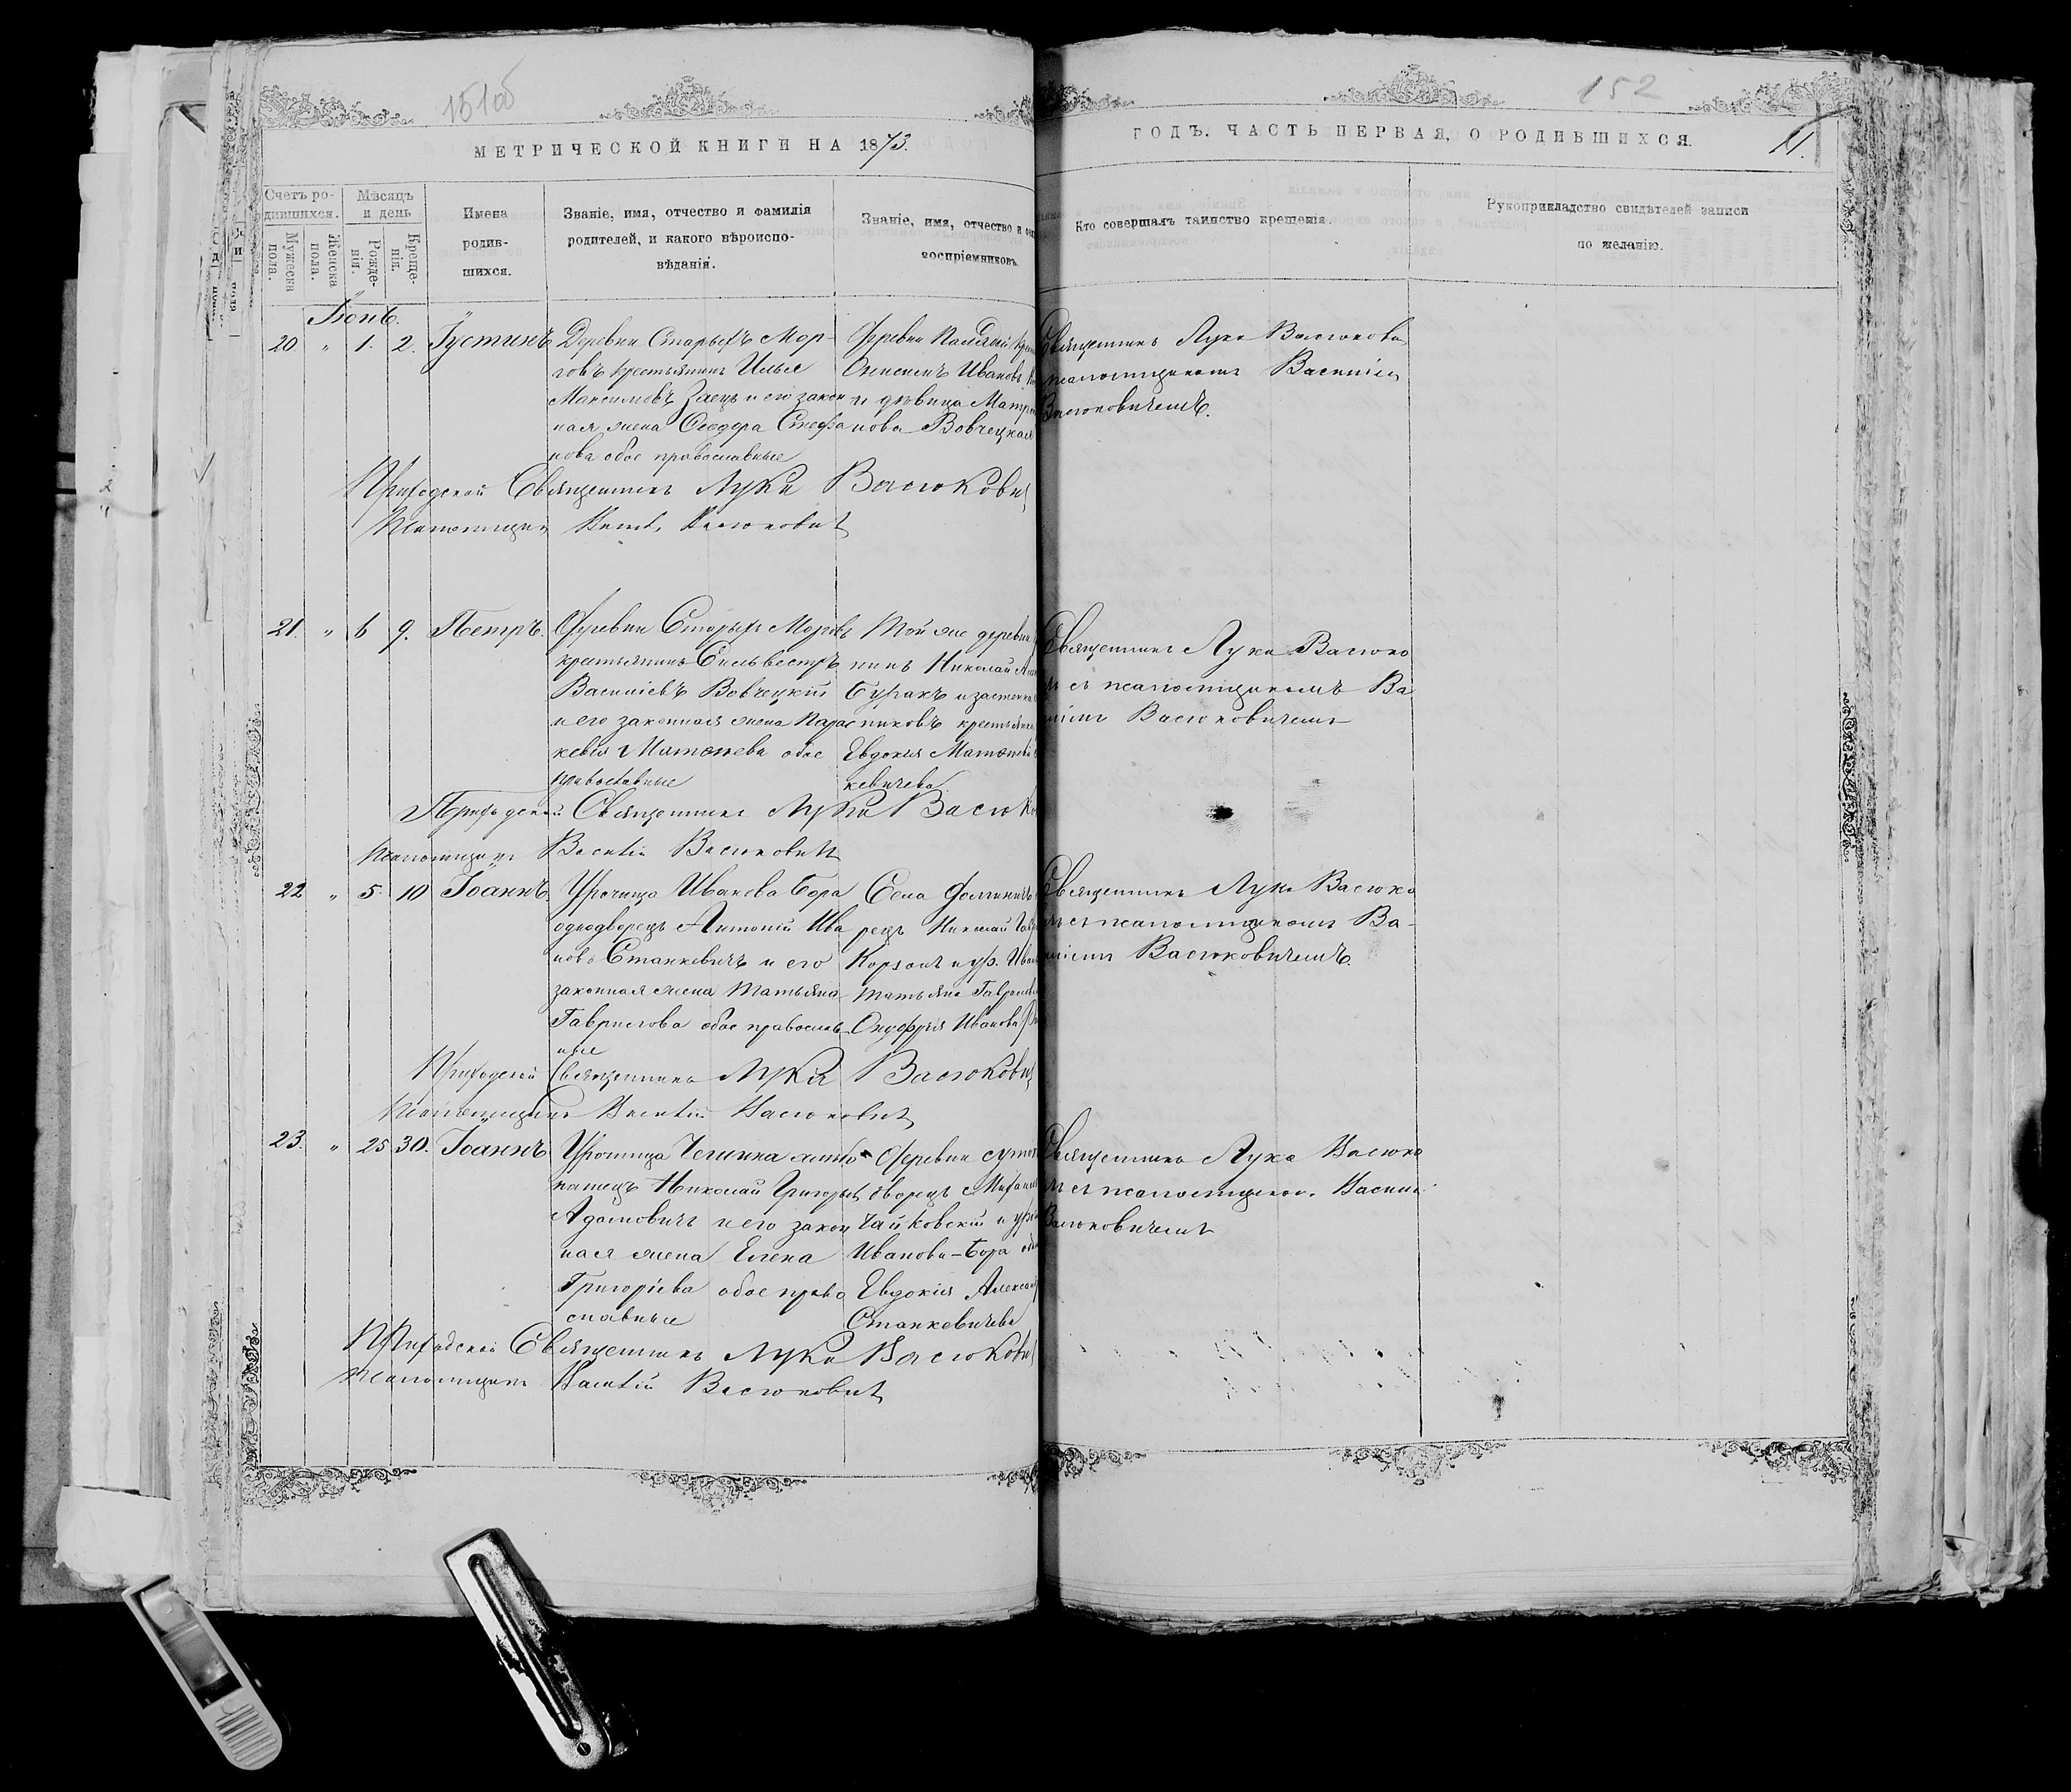 151об
152
МЕТРИЧЕСКОЙ КНИГИ НА 1873.
ГОДЪ. ЧАСТЬ ПЕРВАЯ, О РОДИВШИХСЯ.
11.
Счетъ ро-
дившихся.
Мужеска
пола.
Женска
пола.
Мѣсяцъ
и день
Рожде-
нія.
Креще-
нія.
Имена
родив-
шихся.
Званіе, имя, отчество и фамилія
родителей, и какого вѣроиспо-
вѣданія.
Званіе, имя, отчество и фам
воспріемниковъ.
Кто совершалъ таинство крещенія.
Рукоприкладство свидѣтелей записи
по желанію.
Іюнь.
20 " 1. 2. Іустинъ
Деревни Старыхъ Мор-
говъ крестьянинъ Илья
Максимовъ Заецъ и его закон
ная жена Ѳеодора Стефа
нова обое православные
Деревни
Онисимъ Ивановъ
и дѣвица Матро
нова Вовчецкая
Священникъ Лука Васюкови
псаломщикомъ Василіем
Васюковичемъ.
Приходской Священникъ Лука Васюкович
Псаломщикъ Васил. Васюкович
21. " 6 9. Петръ.
Деревни Старыхъ Морговъ
крестьянинъ Сильвестръ
Василіевъ Вовчецкій
и его законная жена Парас
кевія Матѳеева обое
православные
Той же деревни
нинъ Николай
Буракъ и застенка
никовъ крестьянка
Евдокія Матѳеева
кевичева.
Священникъ Лука Васюко
съ псаломщикомъ Ва
силіемъ Васюковичемъ
Приходской Священникъ Лука Васюко
Псаломщикъ Василій Васюкович
22 " 5 10 Іоаннъ.
Урочища Иванова Бора
однодворецъ Антоній Ива
новъ Станкевичъ и его
законная жена Татьяна
Гавриилова обое православ
ные
Села
рецъ Николай
Корзонъ и ур. Иван
Татьяна Гаврилова
Онуфрія Иванова
Священникъ Лука Васюко
съ псаломщикомъ Ва-
силіемъ Васюковичемъ.
Приходской Священникъ Лука Васюкович
Псаломщикъ Василій Васюкович
23. " 25 30. Іоаннъ
Урочища
Николай Григорьев
Адамовичъ и его закон
ная жена Елена
Григоріева обое право
славные
Деревни
дворецъ Михаил
Чайковскій и ур.
Иванова-Бора
Евдокія Алексан
Станкевичева
Священникъ Лука Васюко
съ псаломщиком. Васил
Васюковичемъ
Приходской Священникъ Лука Васюкович
Псаломщикъ Василій Васюкович